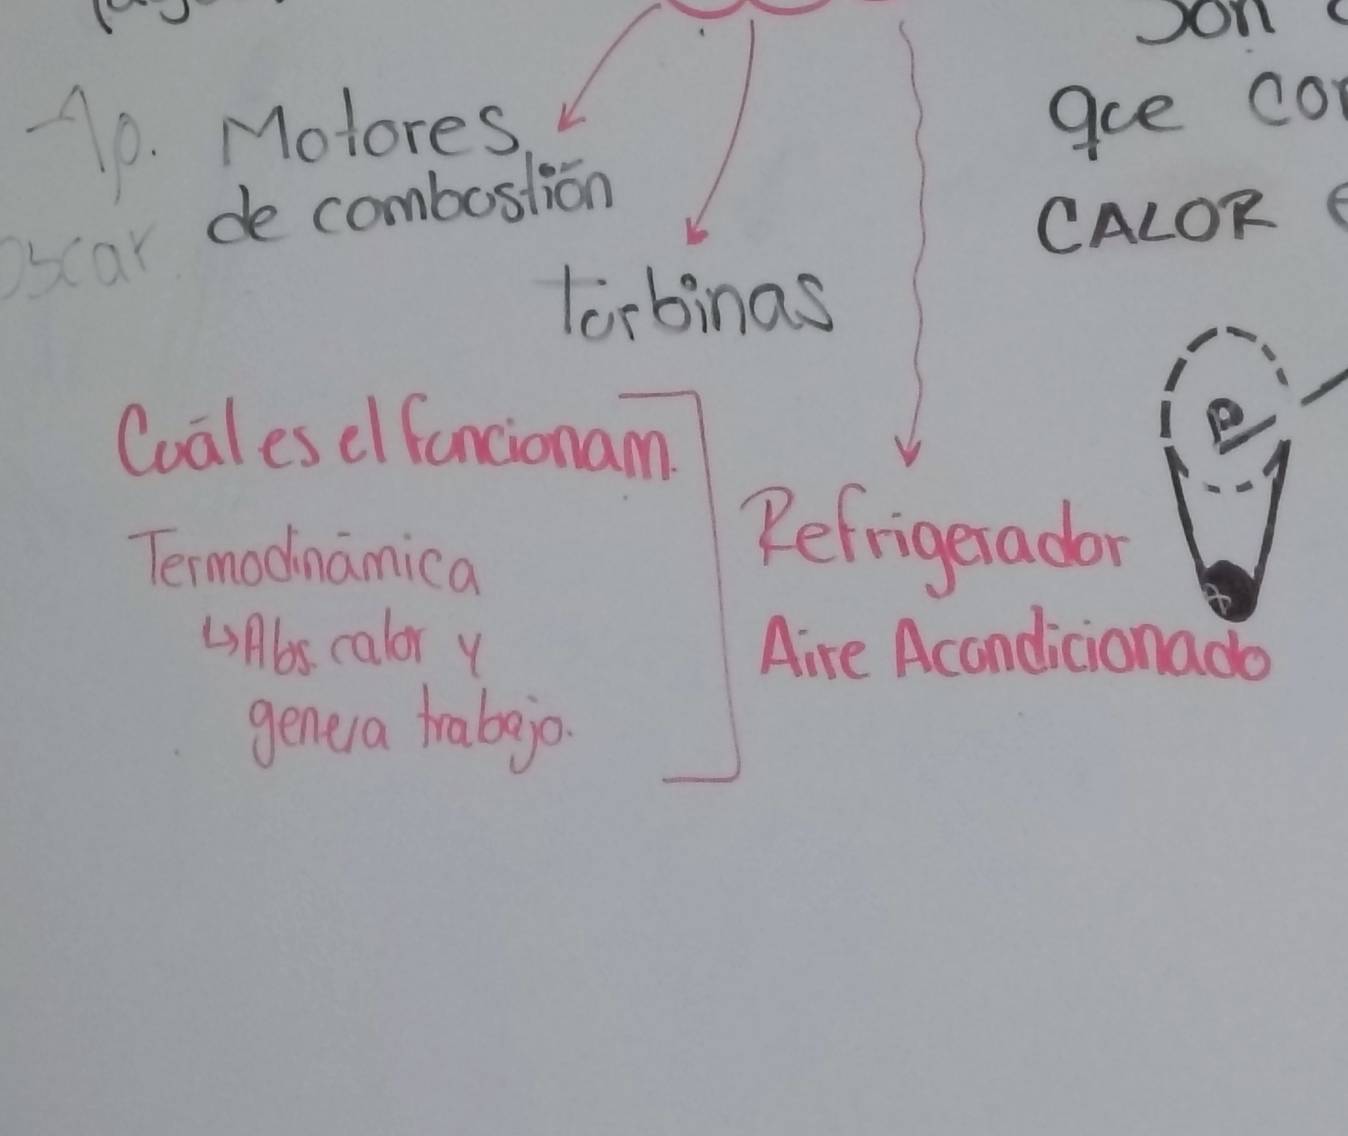 Son
que
Ap. Motores
de combustión
CALOR
oscar
Turbinas
Cuál es el funcionam.
Termodinámica
↳ Abs. calor y
genera trabajo.
Refrigerador
Aire Acondicionado